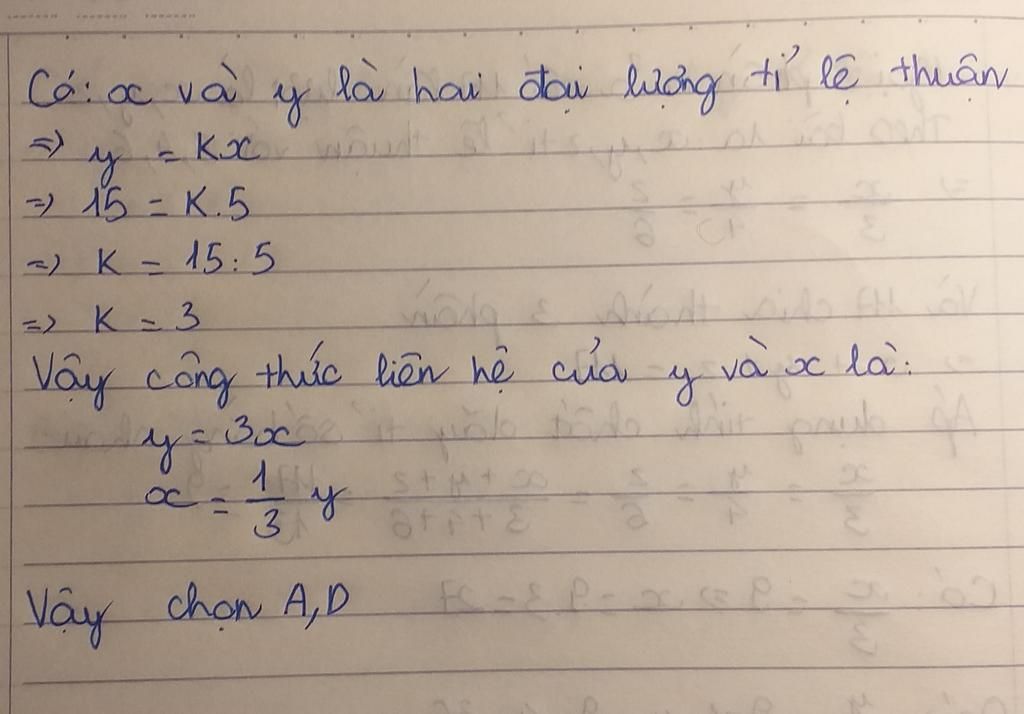 Có: x và y là hai đại lượng tỉ lệ thuận
=> y = Kx
=> 15 = K.5
=> K = 15:5
=> K = 3
Vậy công thức liên hệ của y và x là:
y = 3x
x = 1/3 y
Vậy chọn A,D